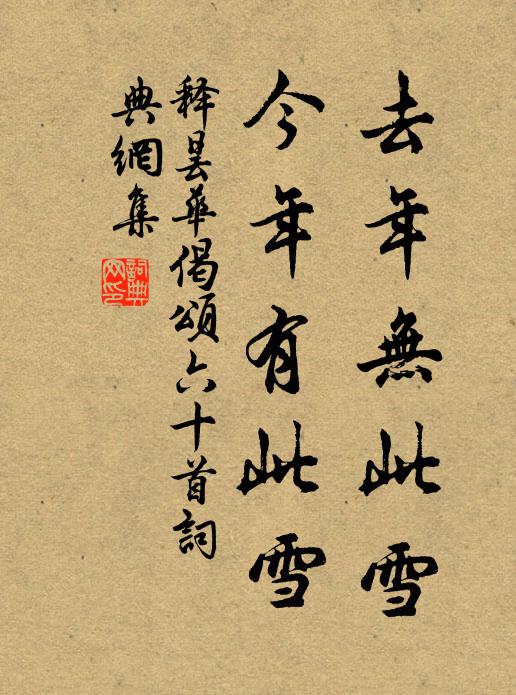 去年無此雪
今年有此雪
释曇華偈頌六十首詞
典網集
詞典
网印